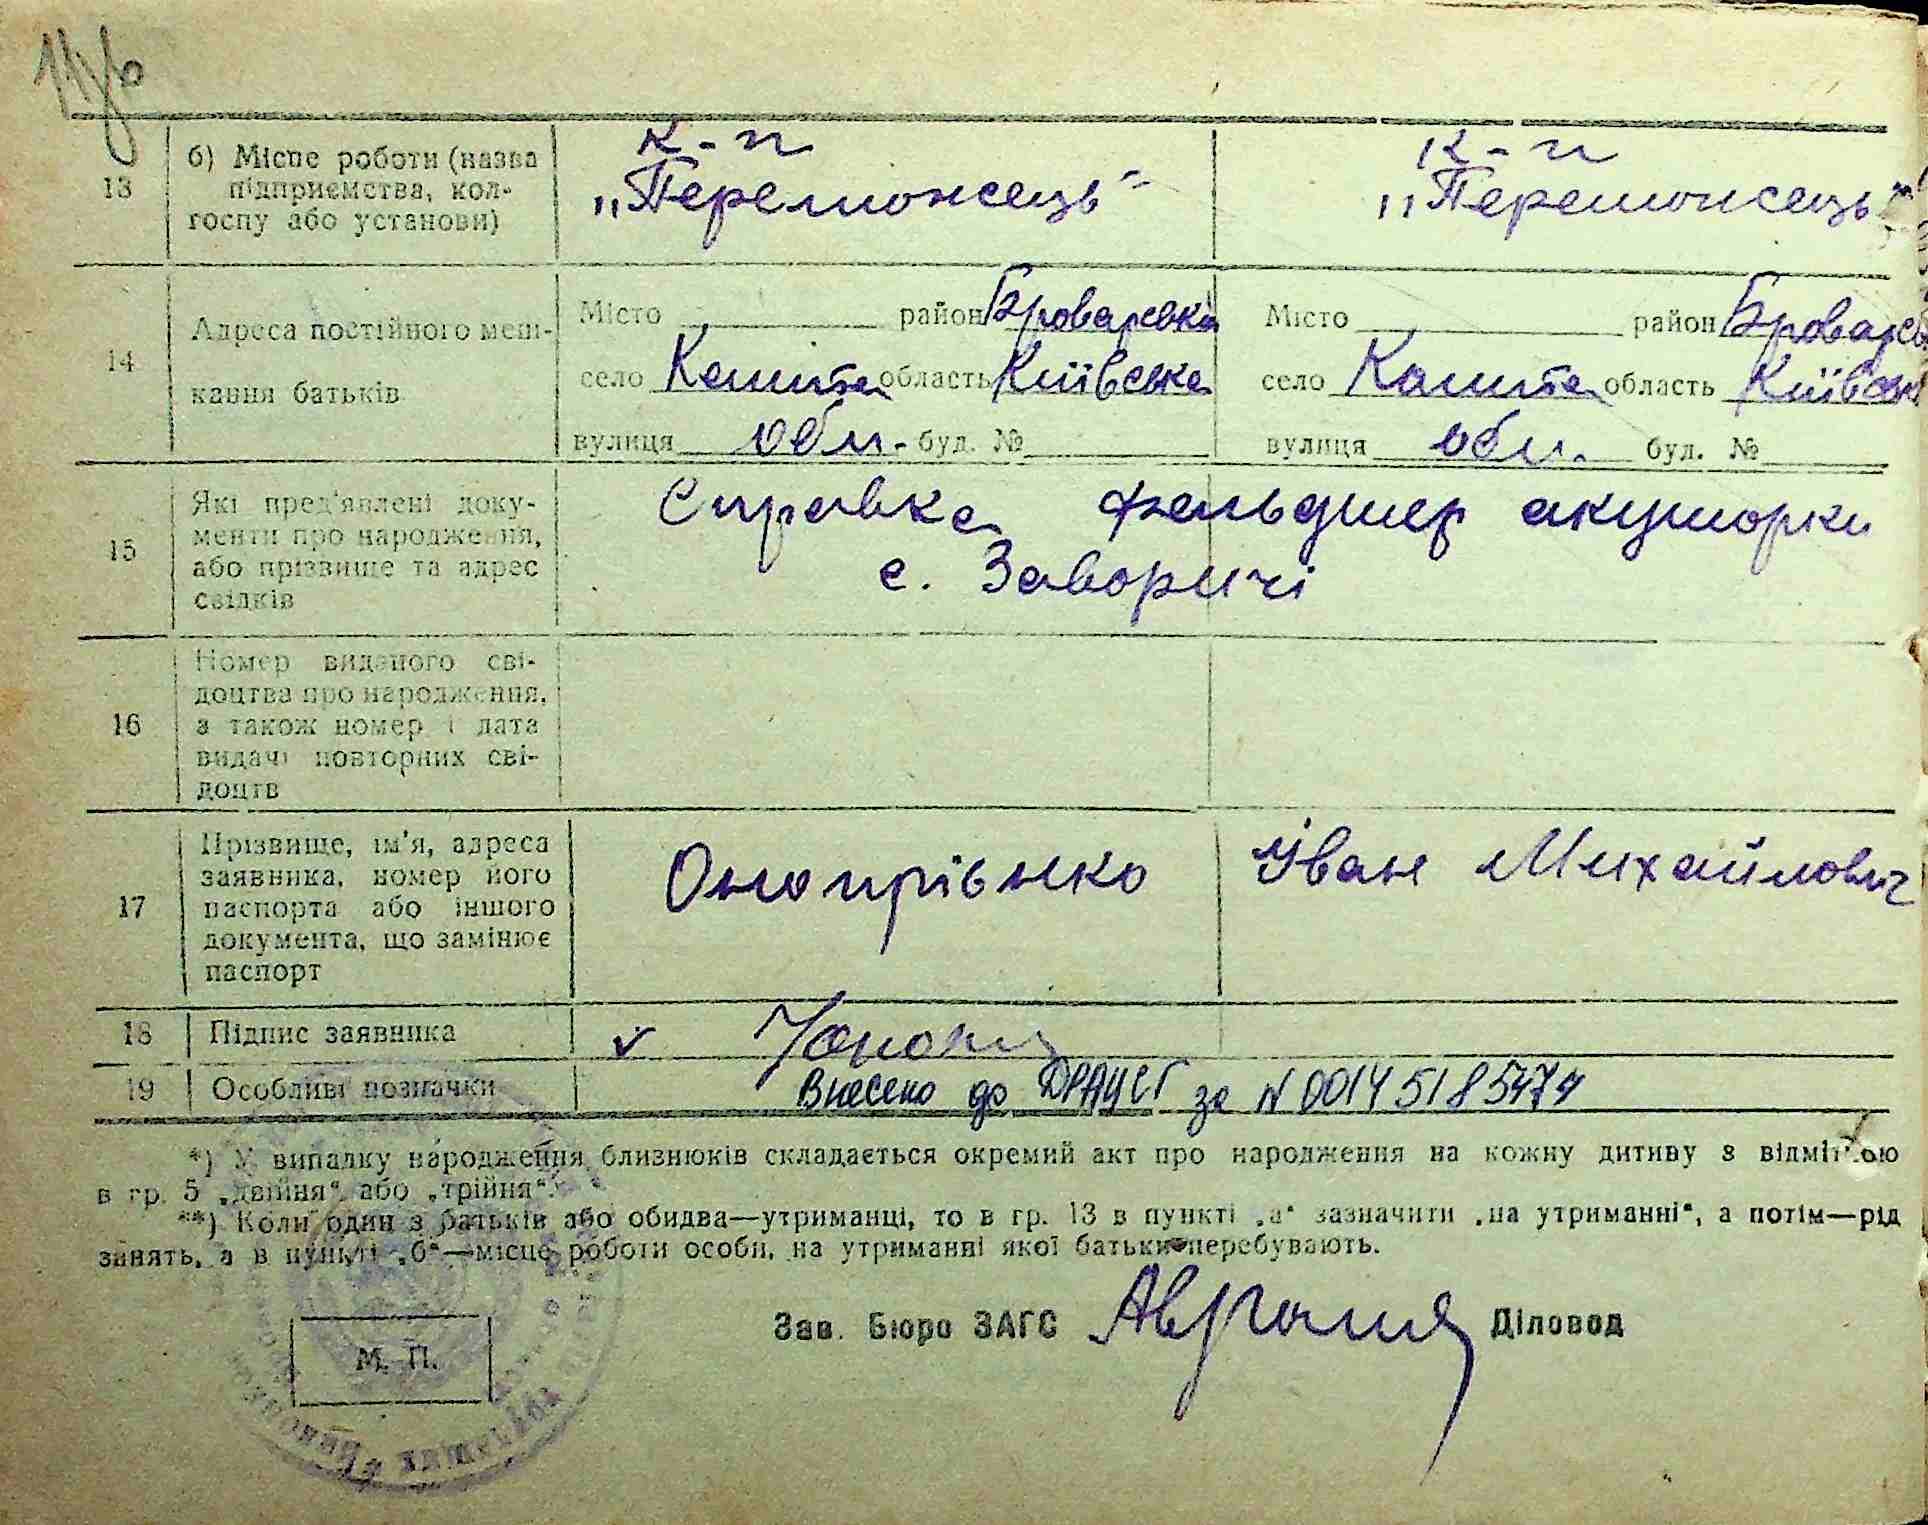 13 б) Місце роботи (назва підприємства, колгоспу або установи)
к-п к-п
„Переможець“ „Переможець“
14 Адреса постійного мешкання батьків
Місто район Броварська Місто район Броварсь
село область Київська село область Київськ
вулиця буд. № вулиця буд. №
15 Які пред'явлені документи про народження, або прізвище та адрес свідків
Справка фельдшер акушорки
с. Заворичі
16 Номер виданого свідоцтва про народження, а також номер і дата видачі повторних свідоцтв
17 Прізвище, ім'я, адреса заявника, номер його паспорта або іншого документа, що замінює паспорт
Онопрієнко Іван Михайлович
18 Підпис заявника
19 Особливі позначки Внесено до ДРАЦСГ за N 00145185474
*) У випадку народження близнюків складається окремий акт про народження на кожну дитину з відміткою
в гр. 5 „двійня“ або „трійня“.
**) Коли один з батьків або обидва—утриманці, то в гр. 13 в пункті „а“ зазначити „на утриманні“, а потім—рід
занять, а в пункті „б“—місце роботи особи, на утриманні якої батьки перебувають.
Зав. Бюро ЗАГС Діловод
М. П.